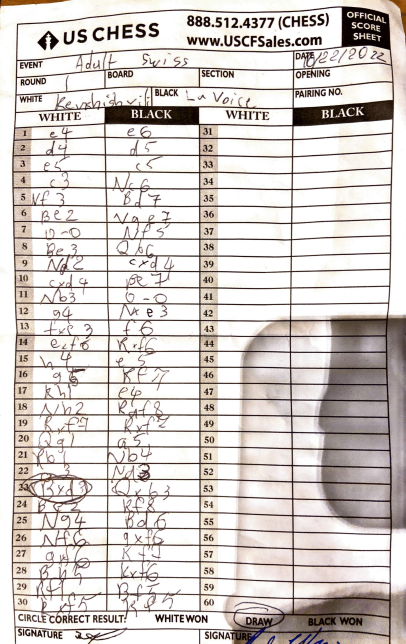 US CHESS
888.512.4377 (CHESS)
www.USCFSales.com
OFFICIAL SCORE SHEET
EVENT Adult Swiss DATE 10/22/2022
ROUND 1 BOARD SECTION OPENING
WHITE BLACK La Voice PAIRING NO.
WHITE BLACK WHITE BLACK
1 e4 e6 31
2 d4 d5 32
3 e5 c5 33
4 c3 Nc6 34
5 Nf3 Bd7 35
6 Be2 Nge7 36
7 0-0 Nf5 37
8 Be3 Qb6 38
9 Nd2 cxd4 39
10 cxd4 Be7 40
11 Nb3 0-0 41
12 g4 Nxe3 42
13 fxe3 f6 43
14 exf6 Rxf6 44
15 h4 e5 45
16 g5 Rf7 46
17 Kh1 e4 47
18 Nh2 Raf8 48
19 Rxf7 Rxf7 49
20 Qg1 a5 50
21 Rb1 Nb4 51
22 Nd3 52
23 Bxd3 Qxb3 53
24 Rf8 54
25 Ng4 Bd6 55
26 Nf6 gxf6 56
27 gxf6 57
28 Bh5 Rxf6 58
29 59
30 60
CIRCLE CORRECT RESULT: WHITE WON DRAW BLACK WON
SIGNATURE SIGNATURE